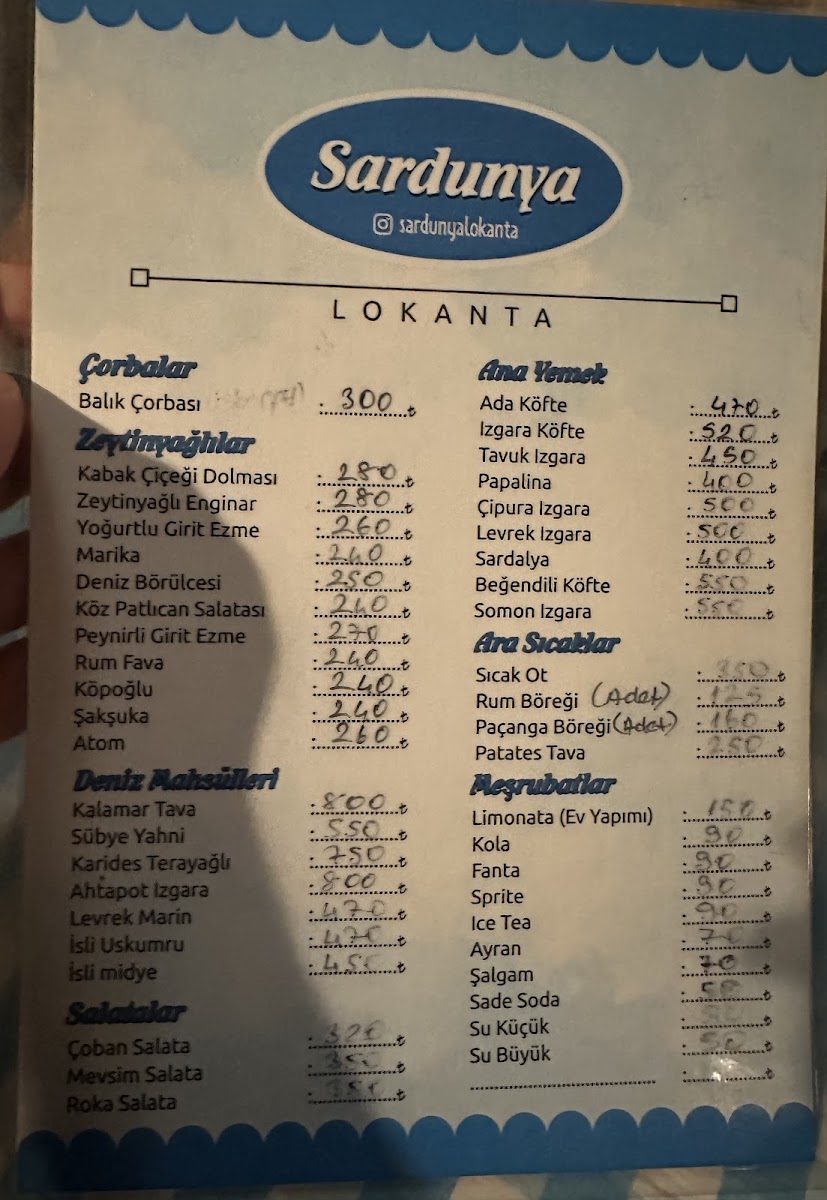 Sardunya
sardunyalokanta
LOKANTA
Çorbalar
Balık Çorbası : 300 ₺
Zeytinyağlılar
Kabak Çiçeği Dolması : 280 ₺
Zeytinyağlı Enginar : 280 ₺
Yoğurtlu Girit Ezme : 260 ₺
Marika : 240 ₺
Deniz Börülcesi : 250 ₺
Köz Patlıcan Salatası : 240 ₺
Peynirli Girit Ezme : 270 ₺
Rum Fava : 240 ₺
Köpoğlu : 240 ₺
Şakşuka : 240 ₺
Atom : 260 ₺
Deniz Mahsülleri
Kalamar Tava : 800 ₺
Sübye Yahni : 550 ₺
Karides Terayağlı : 750 ₺
Ahtapot Izgara : 800 ₺
Levrek Marin : 470 ₺
İsli Uskumru : 470 ₺
İsli midye : 450 ₺
Salatalar
Çoban Salata : 320 ₺
Mevsim Salata : 350 ₺
Roka Salata : 350 ₺
Ana Yemek
Ada Köfte : 470 ₺
Izgara Köfte : 520 ₺
Tavuk Izgara : 450 ₺
Papalina : 400 ₺
Çipura Izgara : 500 ₺
Levrek Izgara : 500 ₺
Sardalya : 400 ₺
Beğendili Köfte : 550 ₺
Somon Izgara : 550 ₺
Ara Sıcaklar
Sıcak Ot : ₺
Rum Böreği (Adet) : 125 ₺
Paçanga Böreği (Adet) : 160 ₺
Patates Tava : 250 ₺
Meşrubatlar
Limonata (Ev Yapımı) : 150 ₺
Kola : 90 ₺
Fanta : 90 ₺
Sprite : 90 ₺
Ice Tea : 90 ₺
Ayran : 70 ₺
Şalgam : 70 ₺
Sade Soda : 50 ₺
Su Küçük : ₺
Su Büyük : 50 ₺
: ₺